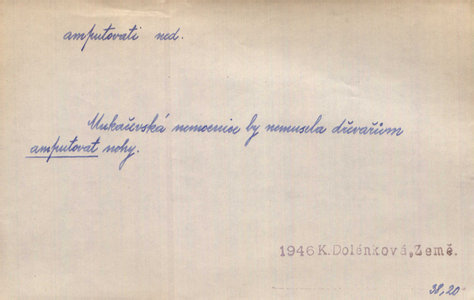 amputovati ned.
Mukačevská nemocnice by nemusela dřevařům
amputovat nohy.
1946 K. Dolénková, Země.
38,20